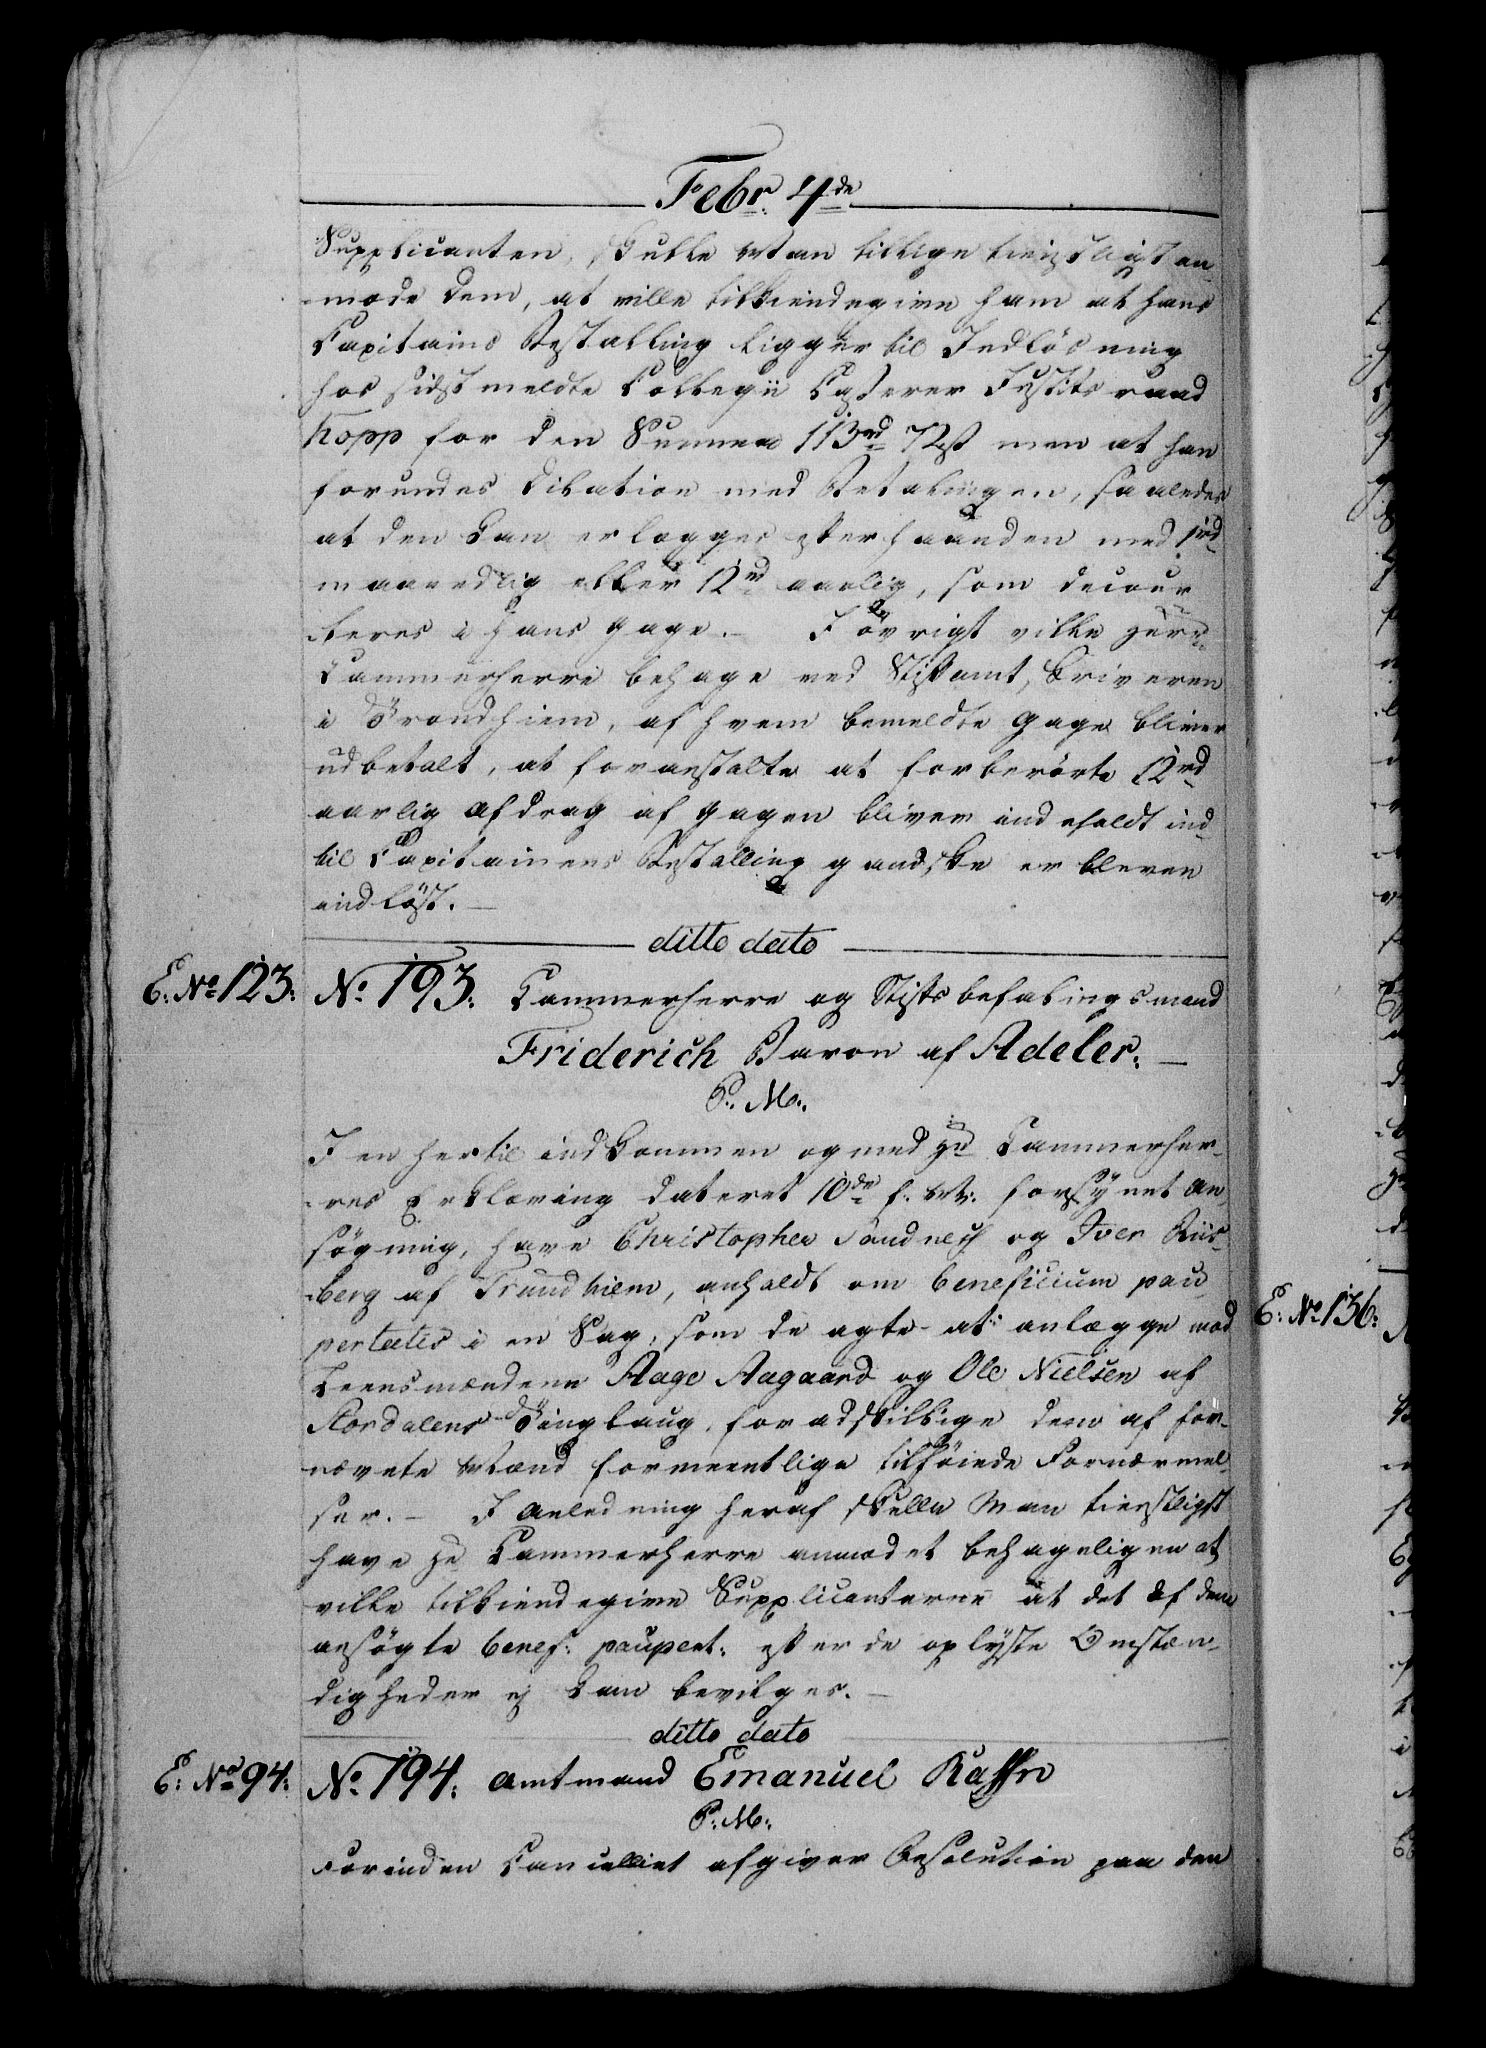 Febr. 4de
Supplicanten, skulle Man tillige tienstligst an-
mode dem, at ville tilkiendegive ham at hans
Capitains Bestalling ligger til Indlösning
hos sidstmeldte Collegii Casserer Justitsraad
Kopp for den Summa 113rd 72s men at han
forundes Dilation med Betalingen, saaledes
at den kan erlægges efterhaanden med 1rd
maanedlig eller 12rd aarlig, som decour-
teres i hans Gage. I övrigt ville Herr
Cammerherre behage ved Stiftamtskriveren
i Trondhiem, af hvem bemeldte Gage bliver
udbetalt, at foranstalte at forberörte 12rd
aarlig Afdrag af Gagen bliver indeholdt ind-
til Capitainens Bestalling gandske er bleven
indlöst.
ditto dato
E: No 123: No 193: Cammerherre og Stiftsbefalingsmand
Friderich Baron af Adeler.
P: M:
I en hertil indkommen og med Hr Cammerher-
res Erklæring dateret 10de f: M: forsynet An-
søgning, have Christopher Sandnes og Iver Riis-
berg af Trundhiem, anholdt om beneficium pau-
pertatis i en Sag, som de agte at anlægge mod
Leensmændene Aage Aagaard og Ole Nielsen af
Stordalens Tinglaug, for adskillige dem af for-
nævnte Mænd formeentlige tilföiede Fornærmel-
ser. I Anledning heraf skulle Man tienstligst
have Hr Cammerherre anmodet behageligen at
ville tilkiendegive Supplicanterne at det af dem
ansögte benef: paupert: efter de oplyste Omstæn-
digheder ej kan bevilges.
ditto dato
E: No 94: No 194: Amtmand Emanuel Kaffn
P: M:
Forinden Cancelliet afgiver Resolution paa den
E: No 136: